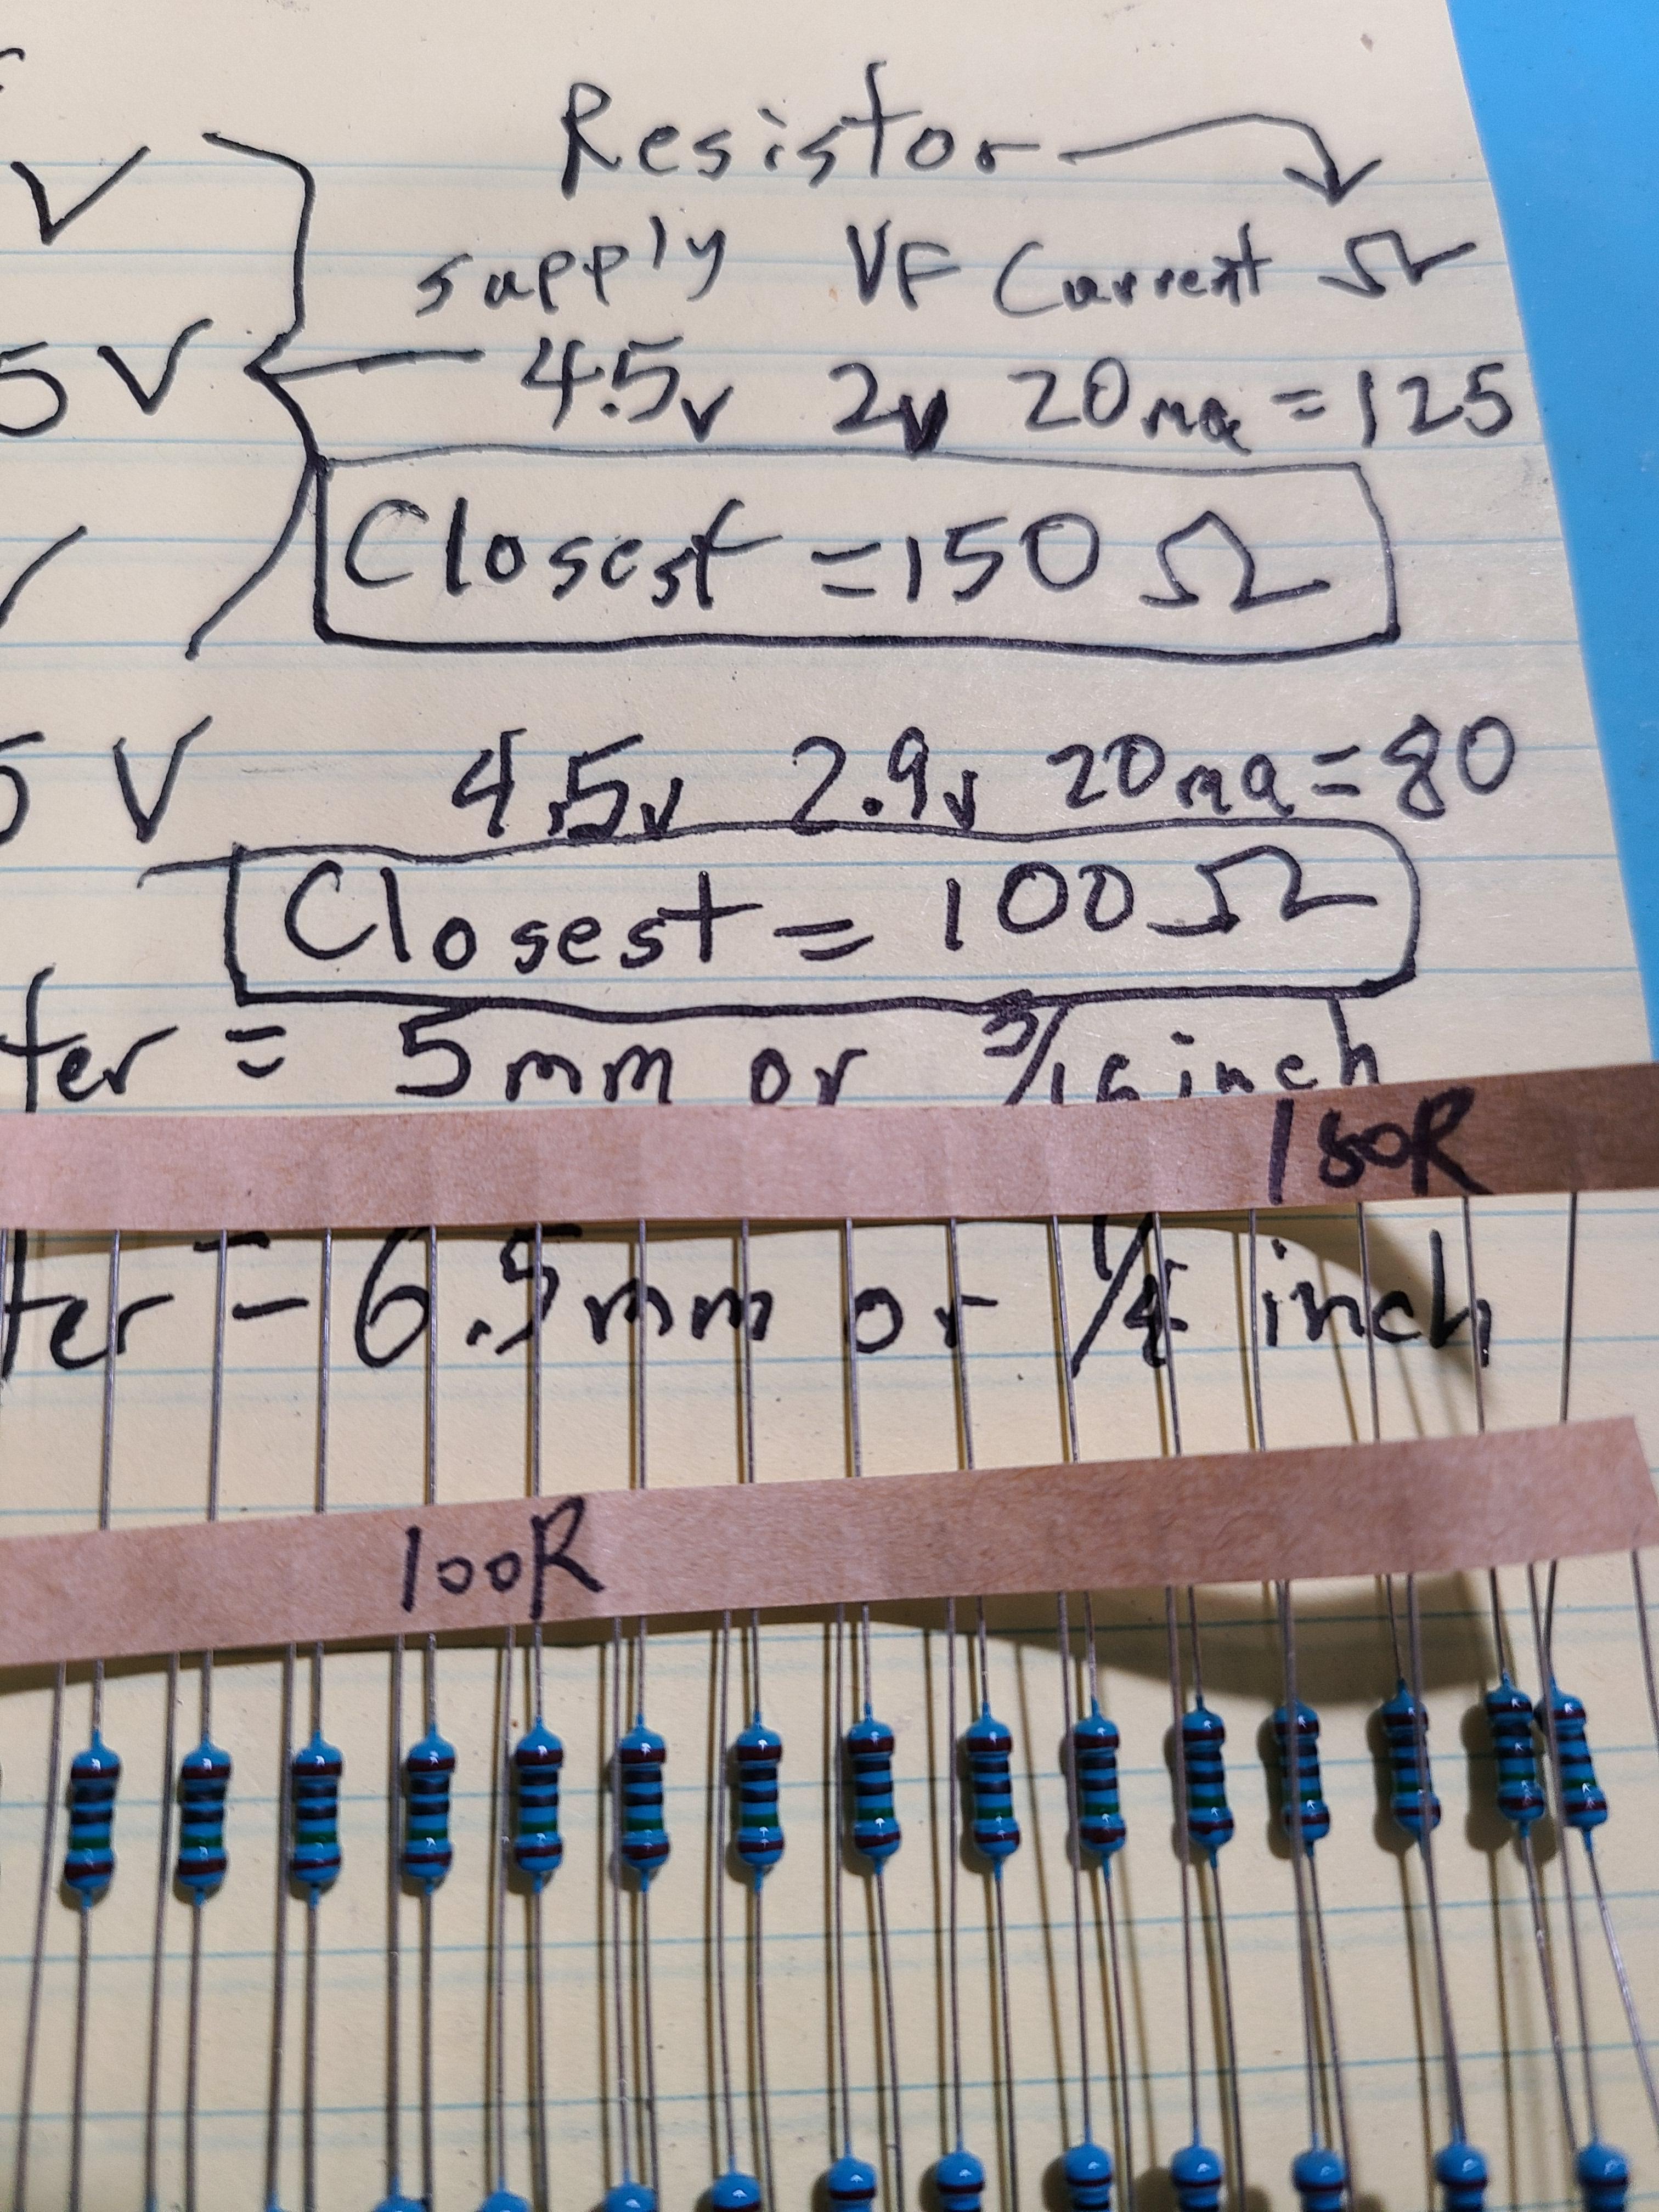 V
Resistor
supply VF Current Ω
5V 4.5v 2v 20ma = 125
Closest = 150 Ω
5 V 4.5v 2.9v 20ma = 80
Closest = 100 Ω
ter = 5mm or 3/16 inch
150R
ter = 6.5mm or 1/4 inch
100R